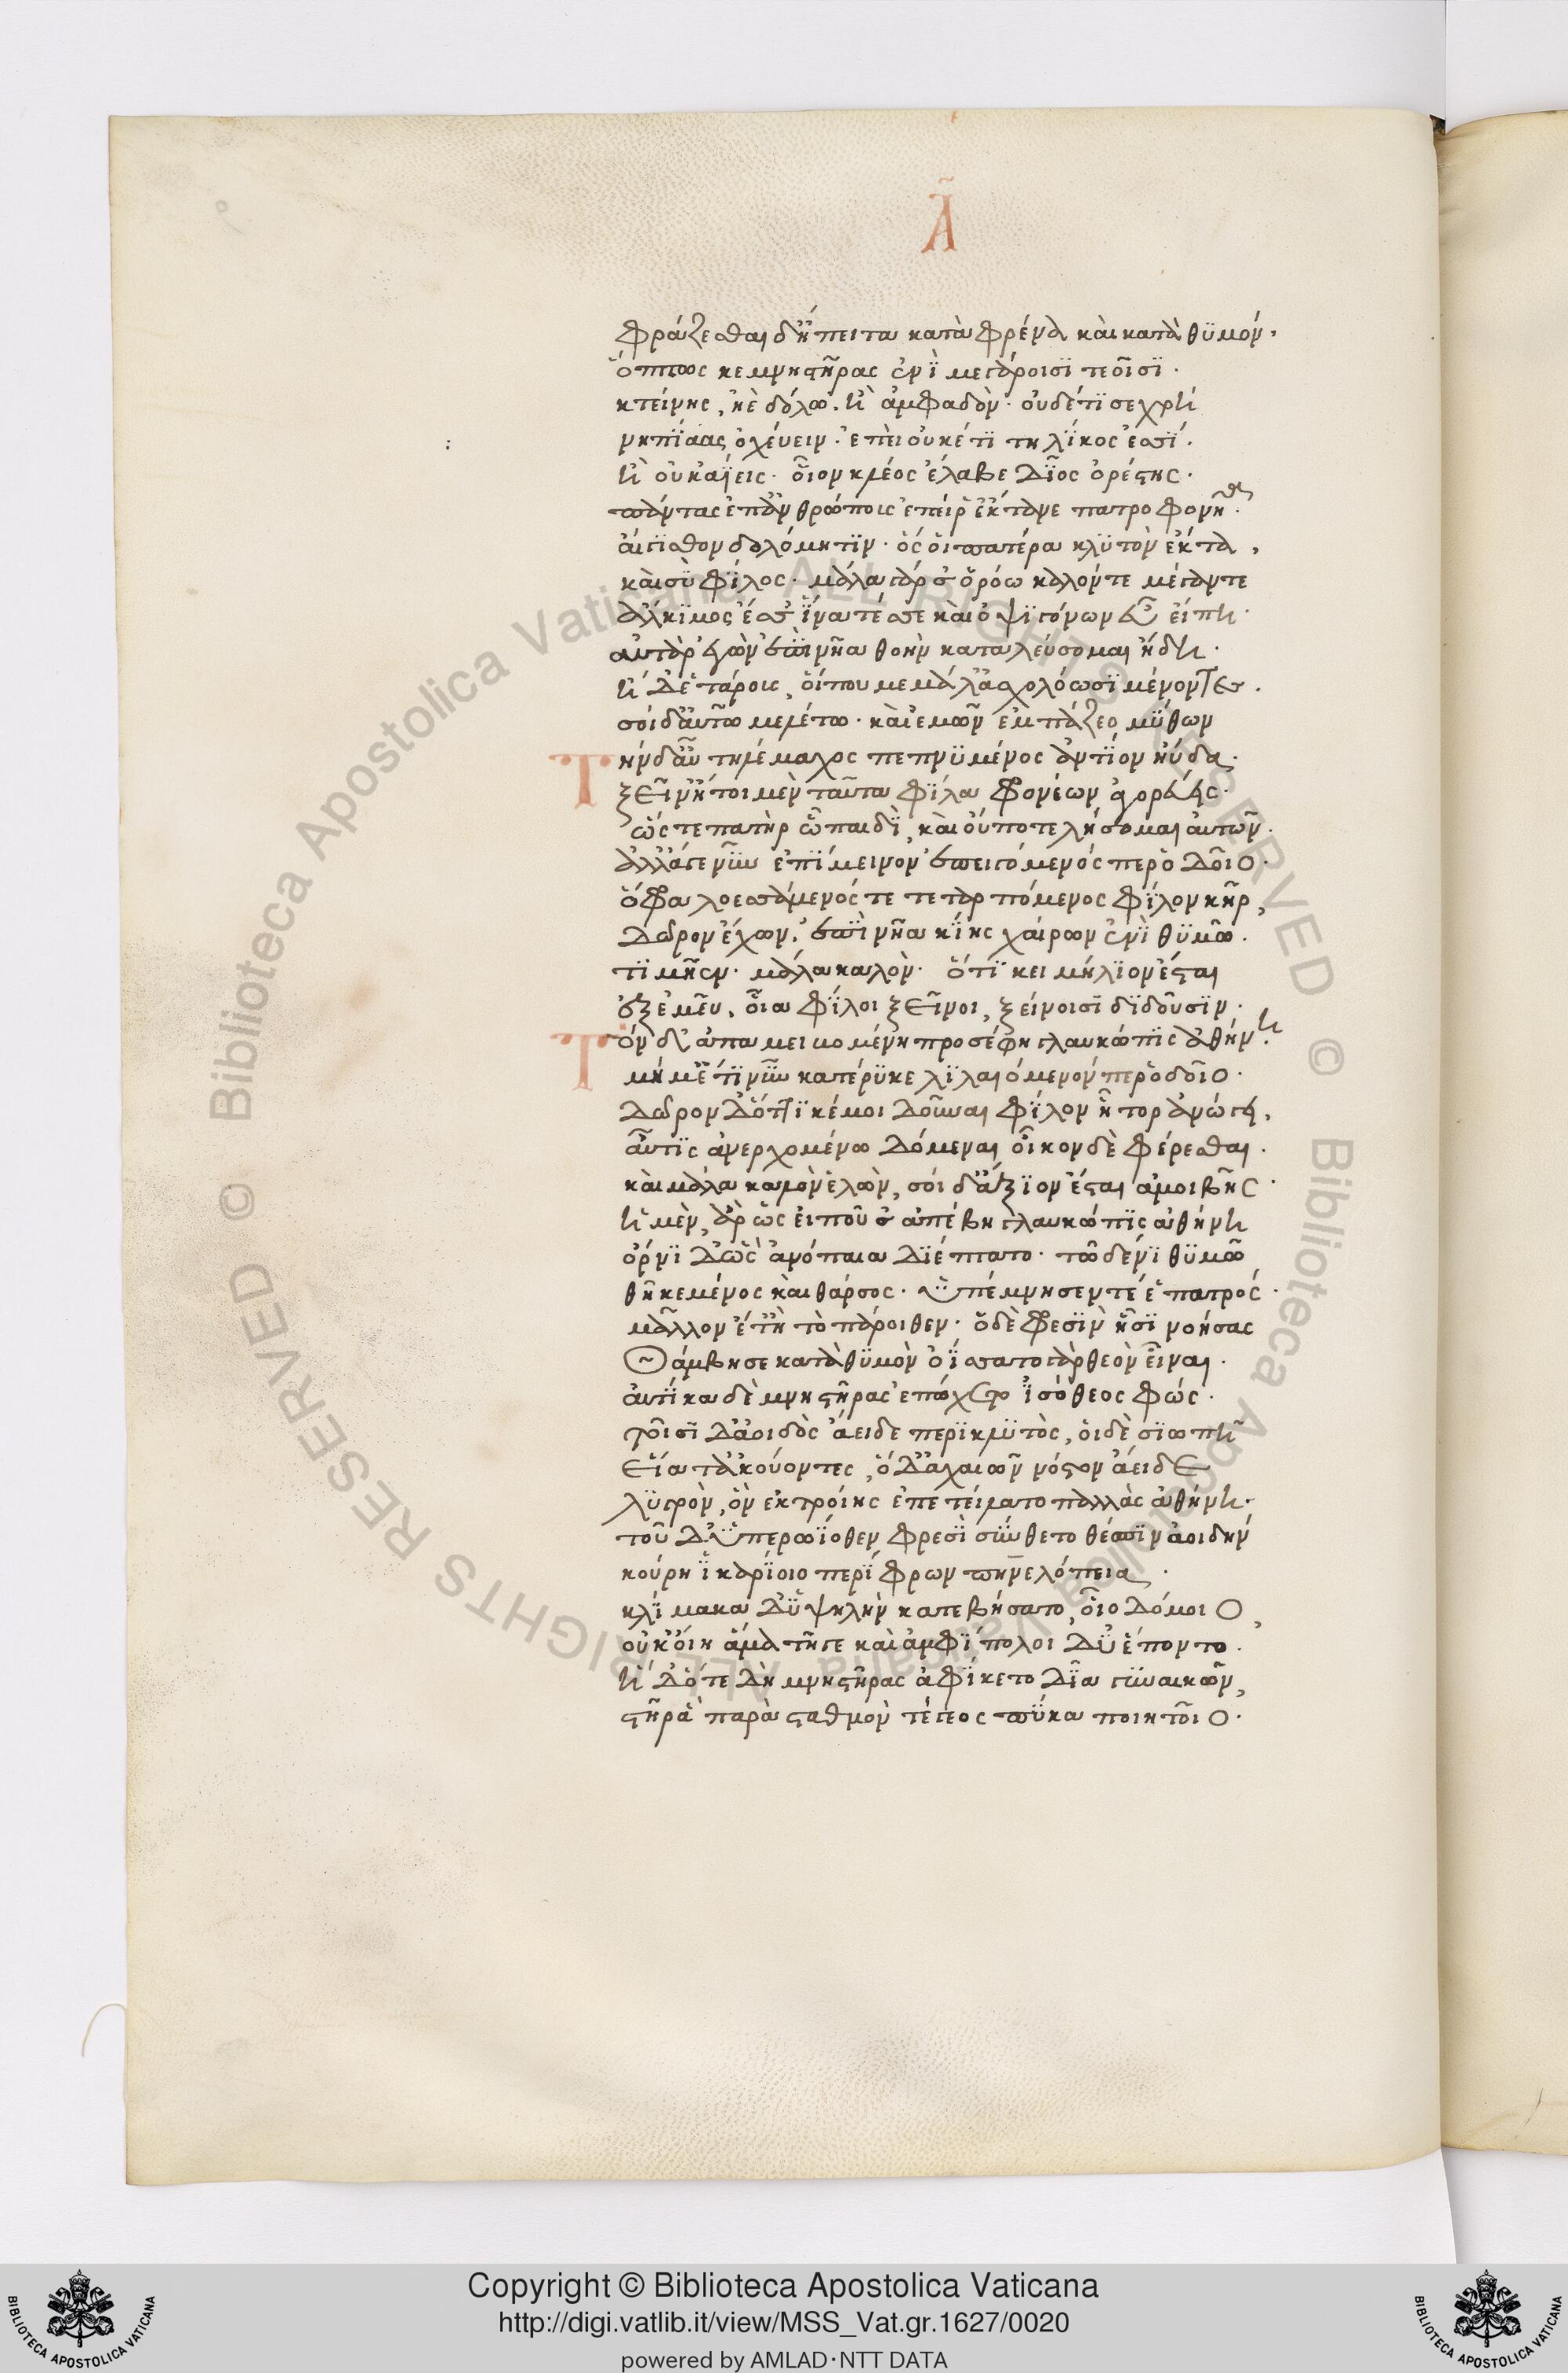 Α
φράζεσθαι δἤπειτα κατὰ φρένα καὶ κατὰ θϋμόν,
ὅππως κε μνηστῆρας ἐνὶ μεγάροισϊ τεοῖσϊ.
κτείνης, ἠὲ δόλω. ἢ ἀμφαδὸν. οὐδέτϊ σε χρὴ
νηπϊάας ὀχέυειν. ἐπεὶ οὐκέτϊ τηλΐκος ἐσσΐ.
ἢ οὐκ αΐεις. οἷον κλέος ἔλαβε δῖος ὀρέστης.
πάντας ἐπ' ἀνθρώποις ἐπεὶρ ἔκτανε πατροφονῆα.
αἴγϊσθον δολόμητϊν. ὅς οἱ πατέρα κλϋτὸν ἔκτα,
καὶ σὺ φΐλος. μάλα γάρ σ' ὁρόω καλόν τε μέγαν τε
ἄλκϊμος ἔσσ' ἵνα τέ σε καὶ ὀψϊγόνων εὖ εἴπη.
αὐτὰρ ἐγὼν ἐπὶ νῆα θοὴν καταλεύσομαι ἤδη.
ἠ δ' ἑτάροις, οἵ που με μάλ' ἀσχολόωσϊ μένοντες.
σοὶ δ' αὐτῶ μελέτω. καὶ ἐμῶν ἐμπάζεο μΰθων
Τὴν δ' αὖ τηλέμαχος πεπνϋμένος ἀντΐον ηὔδα.
ξεῖν' ἤτοι μὲν ταῦτα φΐλα φονέων ἀγορεύεις.
ὥς τε πατὴρ ὧ παιδΐ, καὶ οὔποτε λήσομαι αὐτῶν.
ἀλλ' ἄγε νῦν ἐπΐμεινον ἐπειγόμενός περ ὁδοῖο.
ὄφρα λοεσσάμενός τε τεταρπόμενος φΐλον κῆρ,
δῶρον ἔχων. ἐπὶ νῆα κΐης χαίρων ἐνὶ θϋμῶ.
τϊμῆεν. μάλα καλὸν. ὅ τϊ κειμήλϊον ἔσται
ἐξ ἐμεῦ. οἷα φΐλοι ξεῖνοι, ξείνοισϊ δϊδοῦσϊν.
Τὸν δ' ἀπαμειβομένη προσέφη γλαυκῶπϊς ἀθήνη.
μή μ' ἔτϊ νῦν κατέρϋκε λϊλαιόμενόν περ ὁδοῖο.
δῶρον δ' ὅττϊ κέ μοι δοῦναι φΐλον ἦτορ ἀνώγη,
αὖτϊς ἀνερχομένω δόμεναι οἶκον δὲ φέρεσθαι.
καὶ μάλα καλὸν ἑλὼν, σοὶ δ' ἄξϊον ἔσται ἀμοιβῆς.
ἡ μὲν, ἂρ ὣς εἰποῦσ' ἀπέβη γλαυκῶπϊς ἀθήνη
ὄρνϊ δ' ὣς ἀνόπαια δϊέπτατο. τῶ δ' ἐνὶ θϋμῶ
θῆκε μένος καὶ θάρσος. ὑπέμνησέν τέ ἑ πατρός.
μᾶλλον ἔτ' ἢ τὸ πάροιθεν. ὁ δὲ φρεσϊν ἧσϊ νοήσας
Θάμβησε κατὰ θϋμὸν ὀΐσσατο γὰρ θεὸν εἶναι.
αὐτΐκα δὲ μνηστῆρας ἐπώχετο ἰσόθεος φώς.
τοῖσϊ δ' ἀοιδὸς ἄειδε περϊκλϋτὸς, οἱ δὲ σϊωπῆ
εἵατ' ἀκούοντες, ὁ δ' ἀχαιῶν νόστον ἄειδε
λϋγρὸν, ὃν ἐκ τροίης ἐπετείλατο παλλὰς ἀθήνη.
τοῦ δ' ὑπερωϊόθεν φρεσὶ σΰνθετο θέσπϊν ἀοιδὴν
κούρη ἰκαρΐοιο περΐφρων πηνελόπεια.
κλΐμακα δ' ὑψηλὴν κατεβήσατο, οἷο δόμοιο,
οὐκ οἴη ἅμα τῆγε καὶ ἀμφΐπολοι δΰ' ἕποντο.
ἡ δ' ὅτε δὴ μνηστῆρας ἀφΐκετο δῖα γϋναικῶν,
στῆ ῥα παρὰ σταθμὸν τέγεος πΰκα ποιητοῖο.
Copyright © Biblioteca Apostolica Vaticana
http://digi.vatlib.it/view/MSS_Vat.gr.1627/0020
powered by AMLAD·NTT DATA